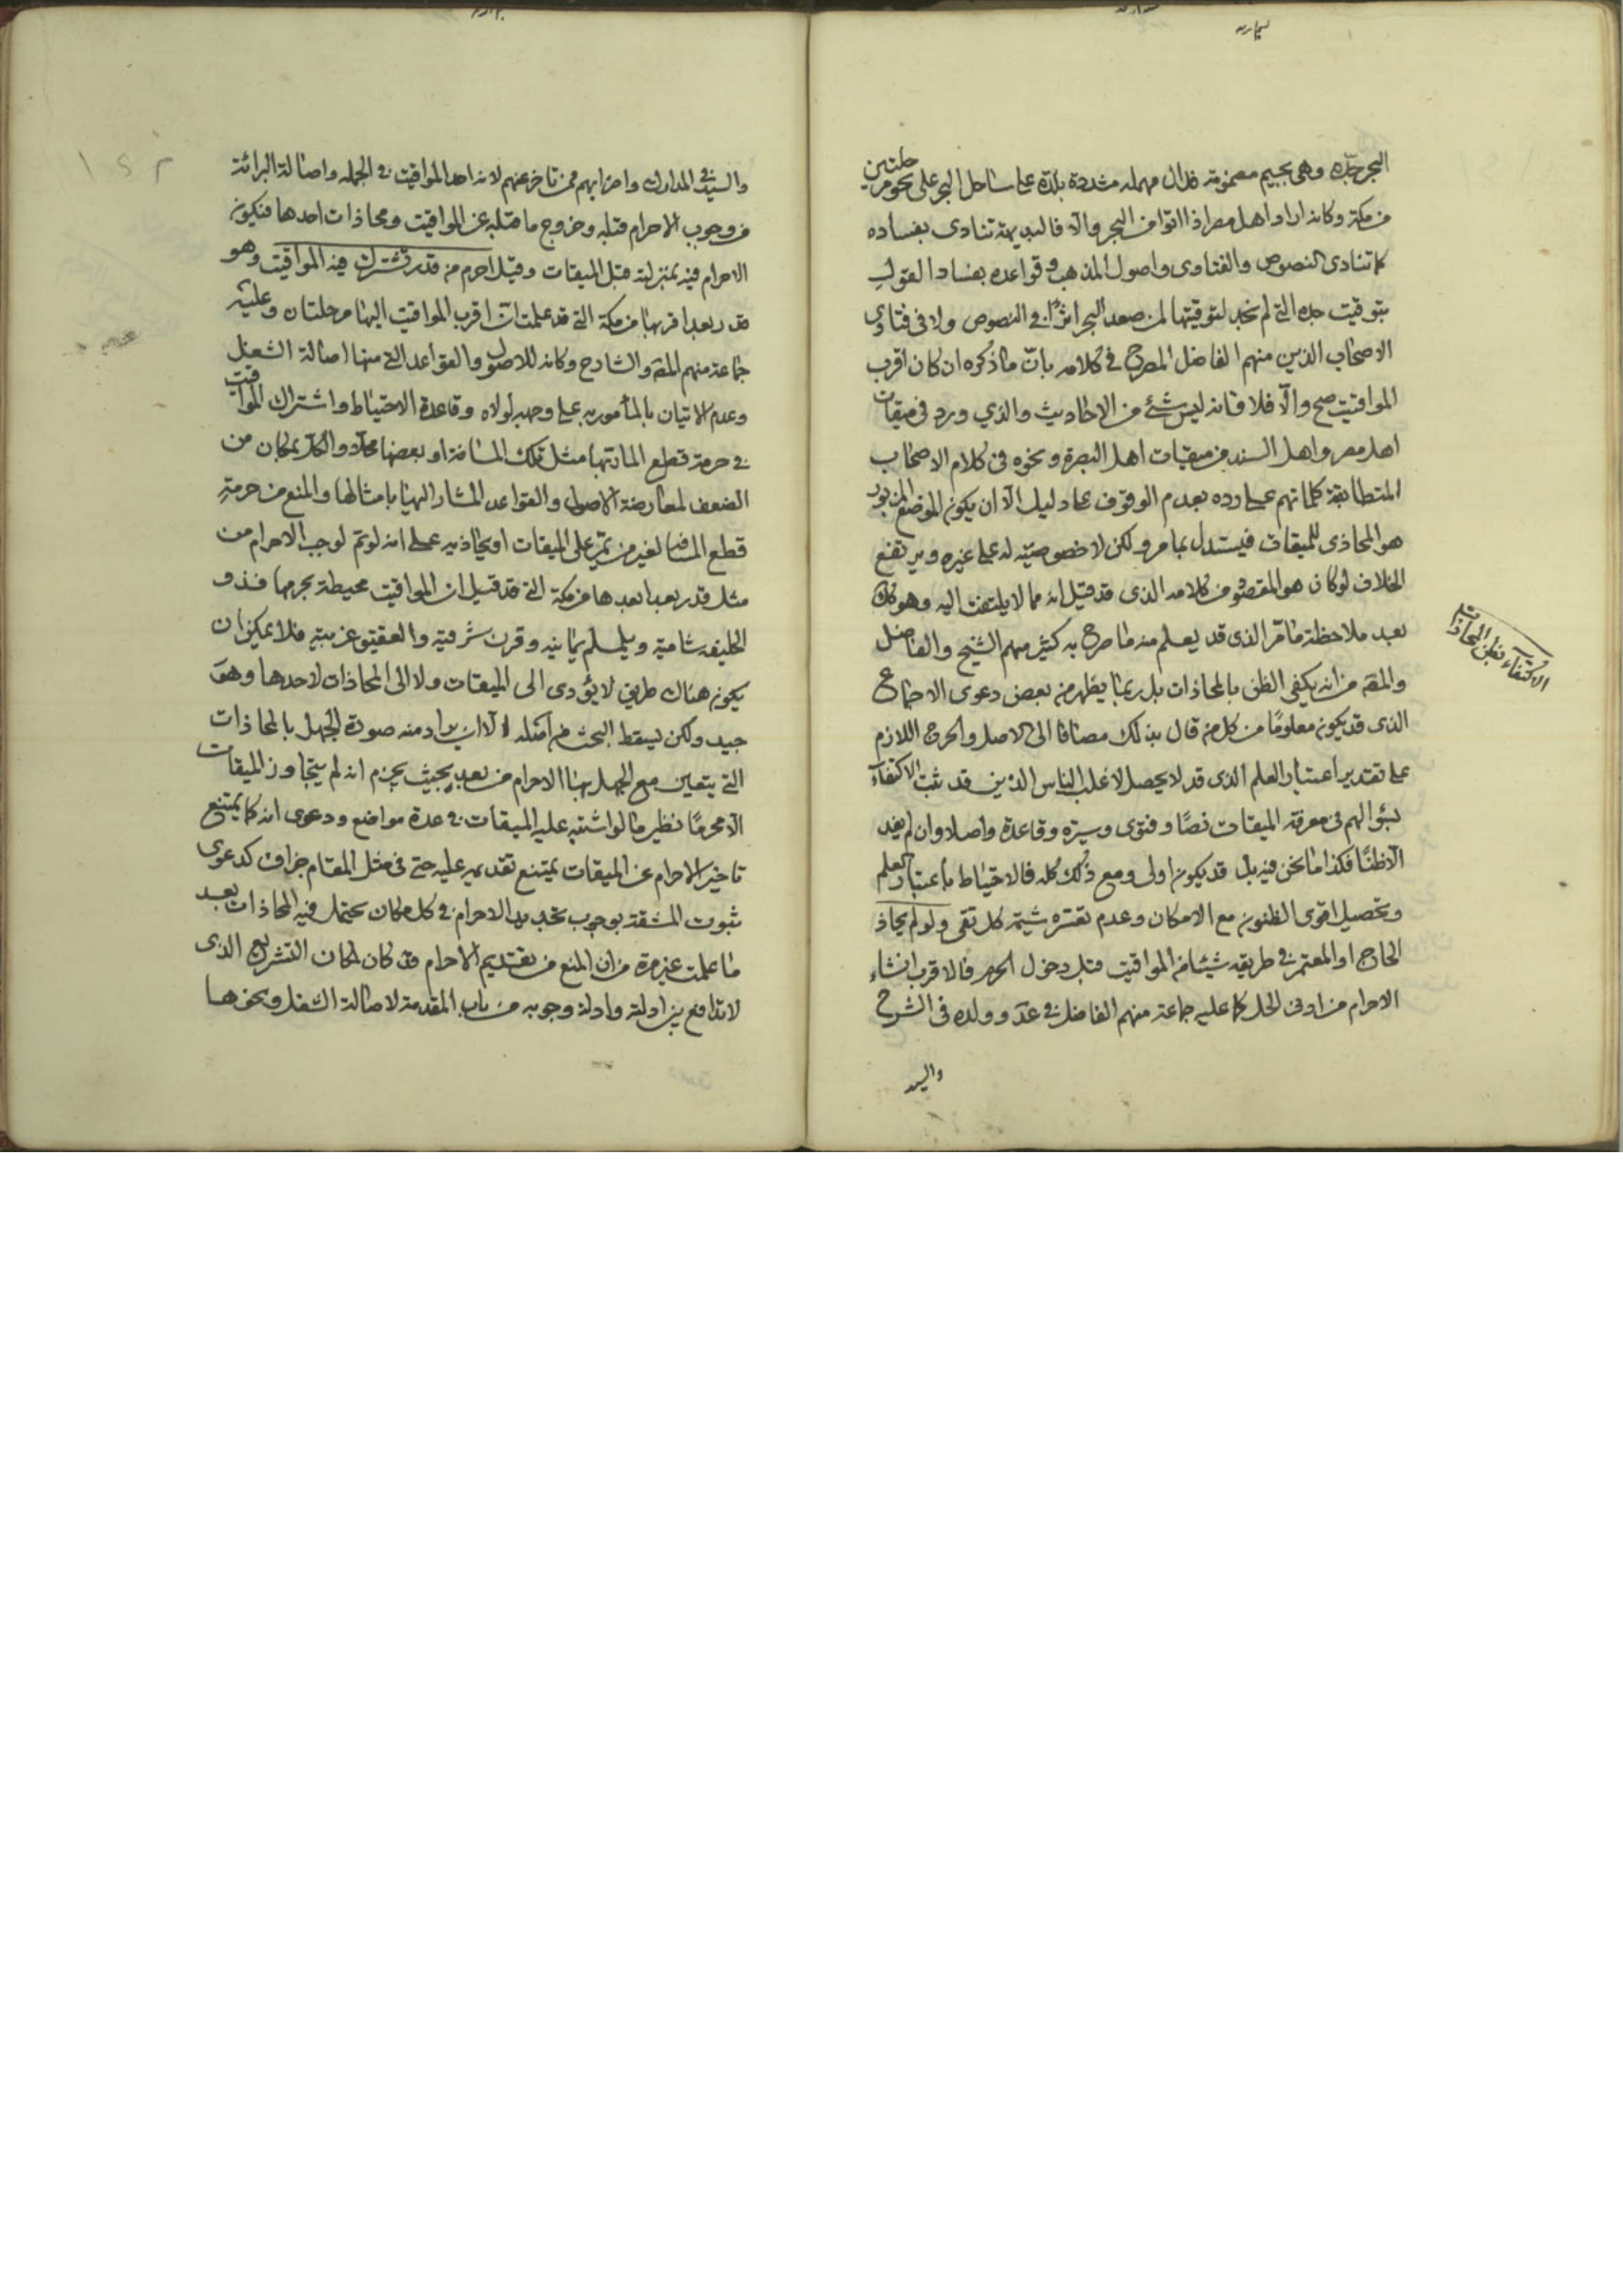 البحر جدّه وهى بجيم مضمومة فدال مهمله مشددة بلدة على ساحل البحر على نحو مرحلتين
من مكة وكانه اراد اهل مصر اذا اتوا من البحر والا فالبديهة تنادى بفساده
كما تنادى النصوص والفتاوى واصول المذهب وقواعده بفساد القول
بتوقيت جده التى لم نجد لتوقيتها لمن صعد البحر اثرًا فى النصوص ولا فى فتاوى
الاصحاب الذين منهم الفاضل المصرح فى كلامه بانّ ما ذكره ان كان اقرب
المواقيت صح والّا فلا فانه ليس شئ من الاحاديث والذي ورد فى ميقات
اهل مصر واهل السند من ميقات اهل البصرة ونحوه فى كلام الاصحاب
المتطابقة كلماتهم على رده بعدم الوقوف على دليل الّا ان يكون الموضع المزبور
هو المحاذى للميقات فيستدل بما مر ولكن لا خصوصيته له على غيره ويرتفع
الخلاف لو كان هو المقصود من كلامه الذى قد قيل انه مما لا يلتفت اليه وهو كك
بعد ملاحظة ما مّر الذى قد يعلم منه ما صرح به كثير منهم الشيخ والفاضل
والمقـ من انه يكفى الظن بالمحاذات بل ربما يظهر من بعض دعوى الاجماع
الذى قد يكون معلومًا من كل من قال بذلك مضافا الى الاصل والحرج اللازم
على تقدير اعتبار العلم الذى قد لا يحصل لاغلب الناس الذين قد ثبت الاكتفآء
بسؤالهم فى معرفة الميقات نصًا وفتوى وسيرة وقاعدة واصلا وان لم يفد
الّا ظنًا فكذا ما نحن فيه بل قد يكون اولى ومع ذلك كله فالاحتياط باعتبار العلم
وتحصيل اقوى الظنون مع الامكان وعدم تعسره شيمة كل تقى ولو لم يحاذ
الحاج او المعتمر فى طريقه شيئا من المواقيت قبل دخول الحرم فالاقرب انشاء
الاحرام من ادنى الحل كما عليه جماعة منهم الفاضل فى عدّ وولده فى الشرح
والسيد
الاكتفاء بظن المحاذات
والسيد فى المدارك واضرابهم ممن تاخر عنهم لانه احد المواقيت فى الجمله واصالة البرائة
من وجوب الاحرام قبله وخروج ما قبله عن المواقيت ومحاذات احدها فيكون
الاحرام فيه بمنزلته قبل الميقات وقيل احرم من قدر تشترك فيه المواقيت وهو
قدر بعد اقربها من مكة التى قد علمت انّ اقرب المواقيت اليها مرحلتان وعليه
جماعة منهم المقـ والشارح وكانه للاصول والقواعد التى منها اصالة الشغل
وعدم الاتيان بالمأمور به على وجهه لولاه وقاعدة الاحتياط واشتراك المواقيت
فى حرمة قطع المار بها مثل تلك المسافة او بعضها محلًا والكل بمكان من
الضعف لمعارضة الاصول والقواعد المشار اليها بامثالها والمنع من حرمة
قطع المسافة لغير من يمّر على الميقات او يحاذيه على انه لو تم لوجب الاحرام من
مثل قدر بعد ابعدها من مكة التى قد قيل ان المواقيت محيطة بحرمها فذو
الحليفه شامية ويلملم يمانيه وقرن شرقية والعقيق غربيته فلا يمكن ان
يكون هناك طريق لا يؤدى الى الميقات ولا الى المحاذات لاحدها وهو
جيد ولكن يسقط البحث من اصله الّا ان يراد منه صورة الجهل بالمحاذات
التى يتعين مع الجهل بها الاحرام من بعد بحيث يجزم انه لم يتجاوز الميقات
الّا محرمًا نظير ما لو اشتبه عليه الميقات فى عدة مواضع ودعوى انه كما يمتنع
تاخير الاحرام عن الميقات يمتنع تقديمه عليه حتى فى مثل المقام جزاف كدعوى
ثبوت المشقة بوجوب تجديد الاحرام فى كل مكان يحتمل فيه المحاذات بعد
ما علمت غير مرة من ان المنع من تقديم الاحرام قد كان لمكان التشريع الذى
لا تدافع بين ادلته وادلة وجوبه من باب المقدمة لاصالة الشغل ونحوها